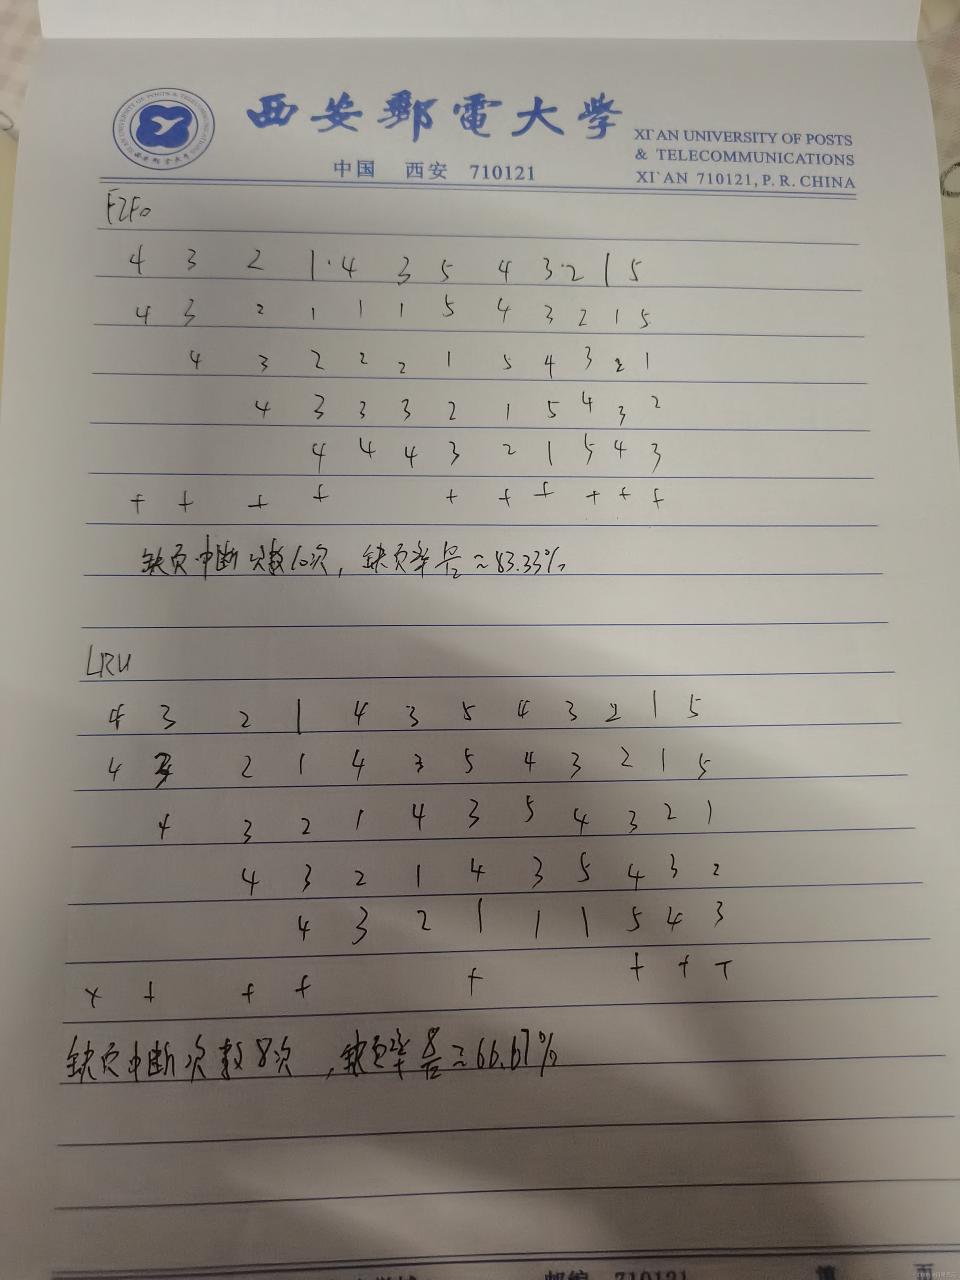 西安郵電大學
XI'AN UNIVERSITY OF POSTS
& TELECOMMUNICATIONS
中国 西安 710121
XI'AN 710121, P. R. CHINA
FIFO
4 3 2 1 4 3 5 4 3 2 1 5
4 3 2 1 1 1 5 4 3 2 1 5
4 3 2 2 2 1 5 4 3 2 1
4 3 3 3 2 1 5 4 3 2
4 4 4 3 2 1 5 4 3
+ + + + + + + + + +
缺页中断次数10次，缺页率10/12≈83.33%
LRU
4 3 2 1 4 3 5 4 3 2 1 5
4 3 2 1 4 3 5 4 3 2 1 5
4 3 2 1 4 3 5 4 3 2 1
4 3 2 1 4 3 5 4 3 2
4 3 2 1 1 1 5 4 3
+ + + + + + + +
缺页中断次数8次，缺页率8/12≈66.67%
710121
页